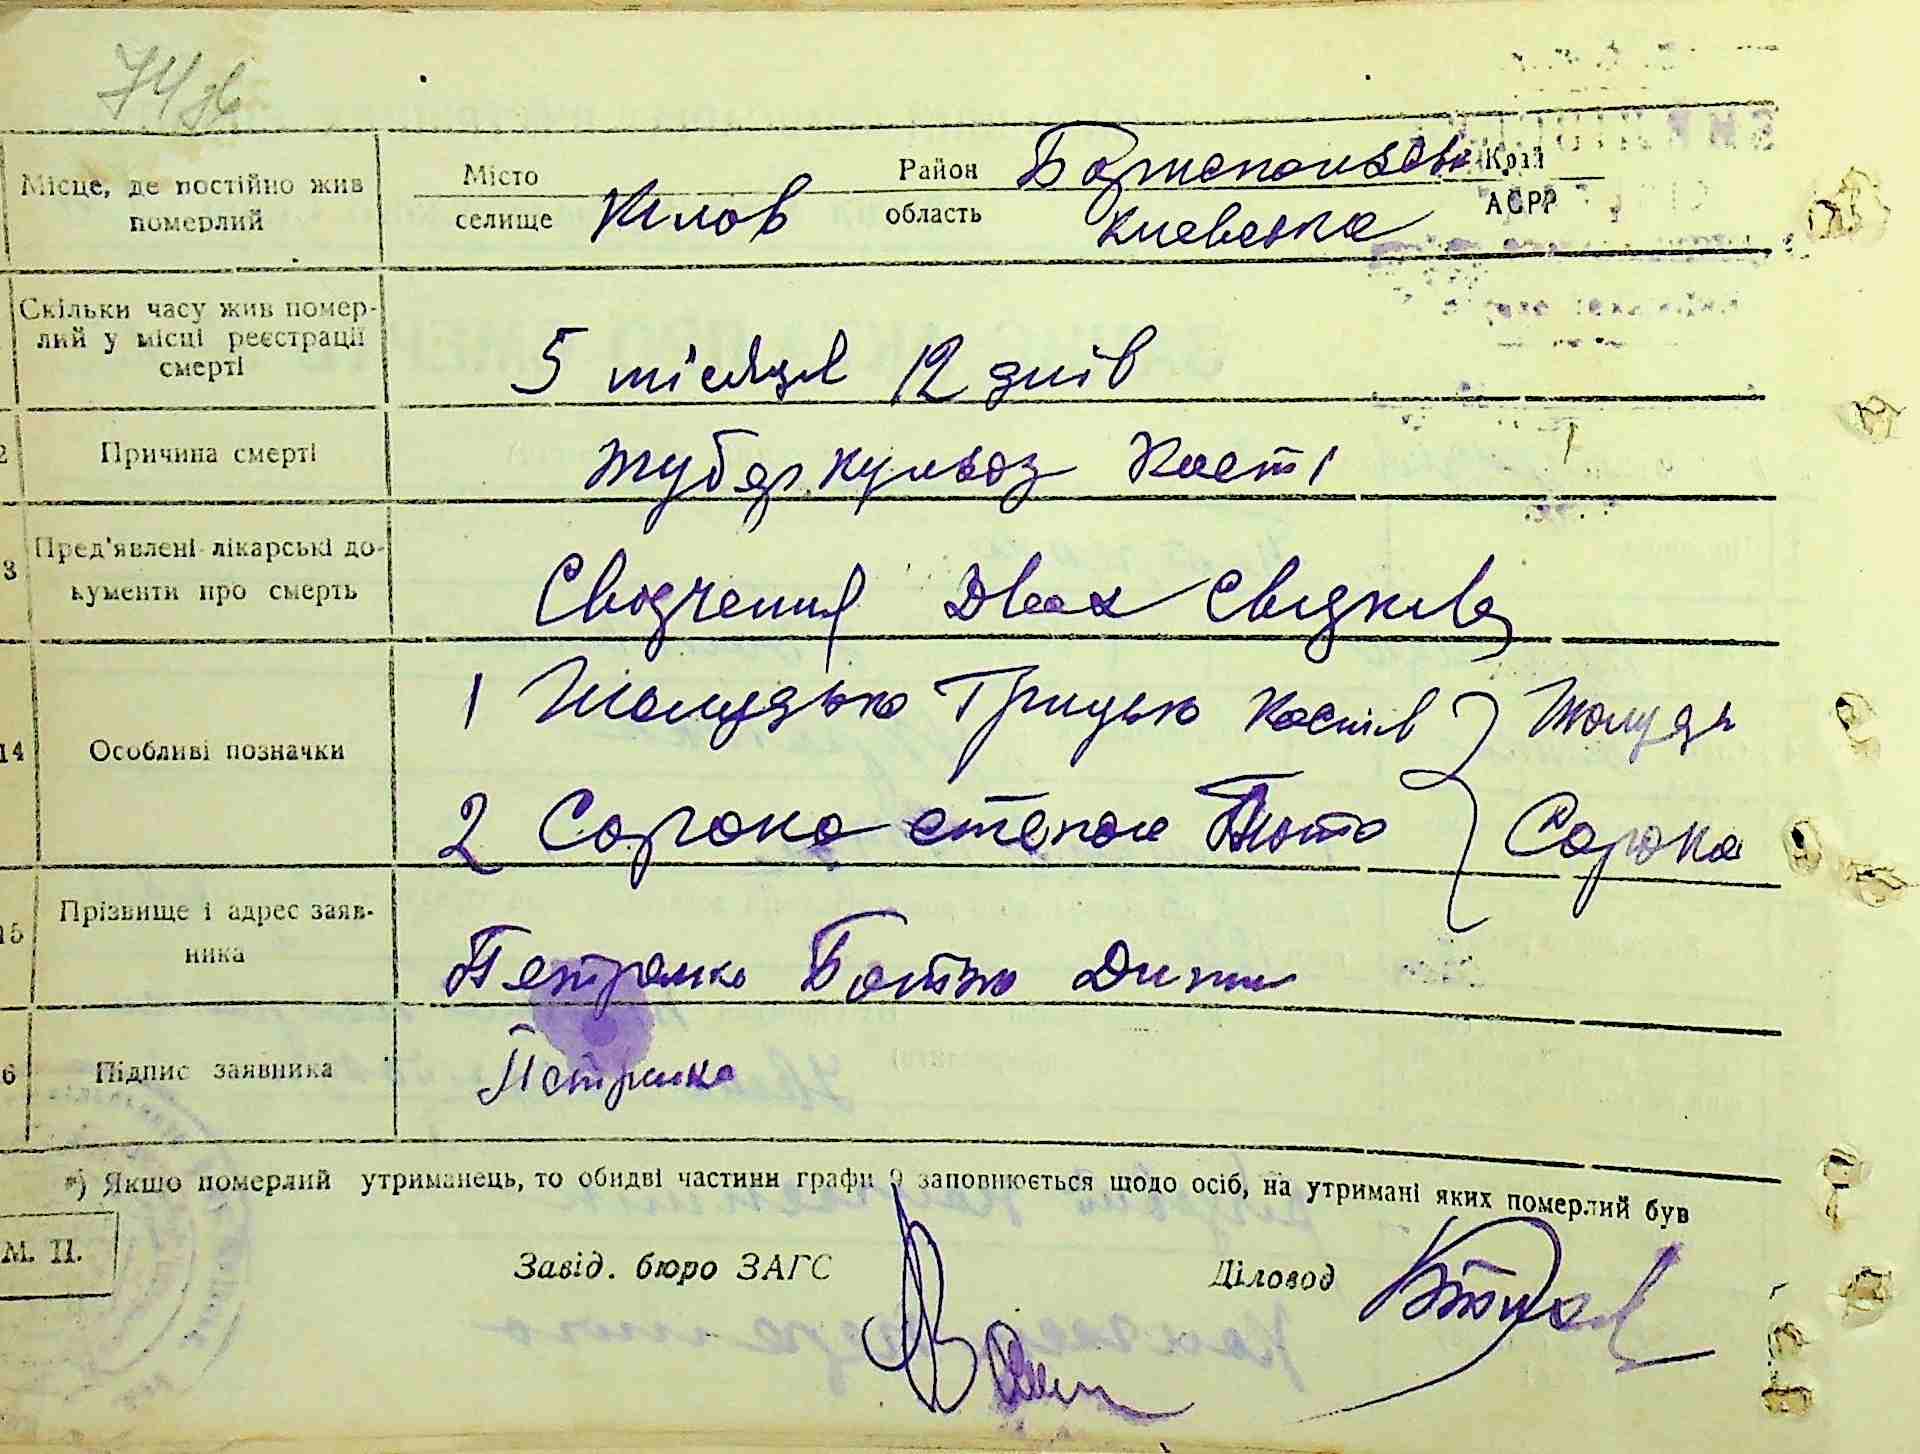 74
Місце, де постійно жив померлий
Місто селище Кілов Район область Київська Край АСРР
Скільки часу жив померлий у місці реєстрації смерті
5 місяців 12 днів
2 Причина смерті
туберкульоз Кості
3 Пред'явлені лікарські документи про смерть
Свідчення Двох Свідків
14 Особливі позначки
1 Жолудько Грицько Костів Жолудь
2 Сорока степан Сорока
15 Прізвище і адрес заявника
Петренко Батько Дитини
6 Підпис заявника
Петренко
*) Якшо померлий утриманець, то обидві частини графи 9 заповнюється щодо осіб, на утримані яких померлий був
М. П.
Завід. бюро ЗАГС
Діловод